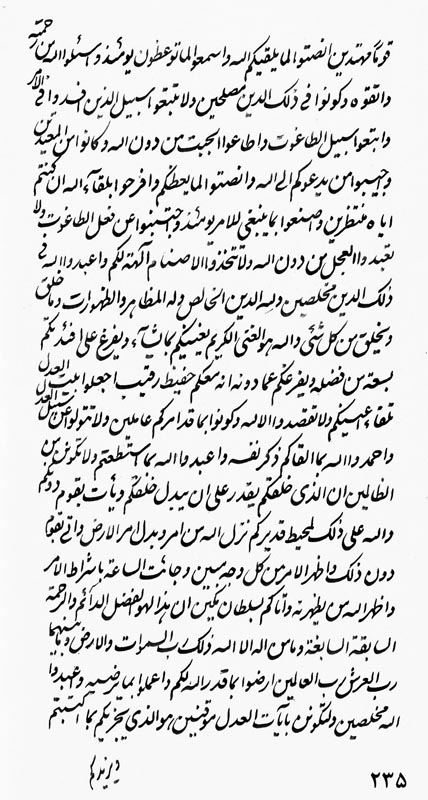 قوماً مهتدين انصتوا لما يلقيكم الله واسمعوا لما توعظون يومئذ واسئلوا الله من رحمته
واتقوه وكونوا في ذلك الدين مصلحين ولا تتبعوا سبيل الذين افسدوا في الامر
واتبعوا سبيل الطاغوت واطاعوا الجبت من دون الله وكانوا من المعتدين
واجيبوا من يدعوكم الى الله وانصتوا لما يعظكم وافرحوا بلقاء الله ان كنتم
اياه منتظرين واصنعوا بما ينبغي للامر يومئذ واجتنبوا عن فعل الطاغوت ولا
تعبدوا العجل من دون الله ولا تتخذوا الاصنام آلهة لكم واعبدوا الله في
ذلك الدين مخلصين ولله الدين الخالص وله المظاهر والظهورات وما خلق
ويخلق من كل شئ والله هو الغني الكريم يغنيكم بما شاء ويفرغ على افئدتكم
بسعة من فضله ويفرغكم عما دونه انه معكم حفيظ رقيب اجعلوا بيت العدل
تلقاء اعينكم ولا تقصدوا الا له وكونوا بما قد امركم عاملين ولا تتولوا عن سبيل العدل
واحمدوا الله بما القاكم ذكر نفسه واعبدوا الله بما استطعتم ولا تكونن من
الظالمين ان الذي خلقكم يقدر على ان يبدل خلقكم ويأت بقوم دونكم
والله على ذلك لمحيط قدير كم نزل الله من امر وبدل امر الارض واتى بقوم
دون ذلك واظهر الامر من كل وجه مبين وجائت الساعة باشراط الامر
واظهر الله من يظهر به وآتاكم بسلطان مكين ان هذا لهو الفضل الدائم والرحمة
السابقة السابغة وما من اله الا الله ذلك رب السموات والارض وما بينهما
رب العرش رب العالمين ارضوا بما قدر الله لكم واعملوا بما ترضيه واعبدوا
الله مخلصين ولتكونن بآيات العدل موقنين هو الذي يجزيكم بما اكتسبتم
ويزيدكم
٢٣٥